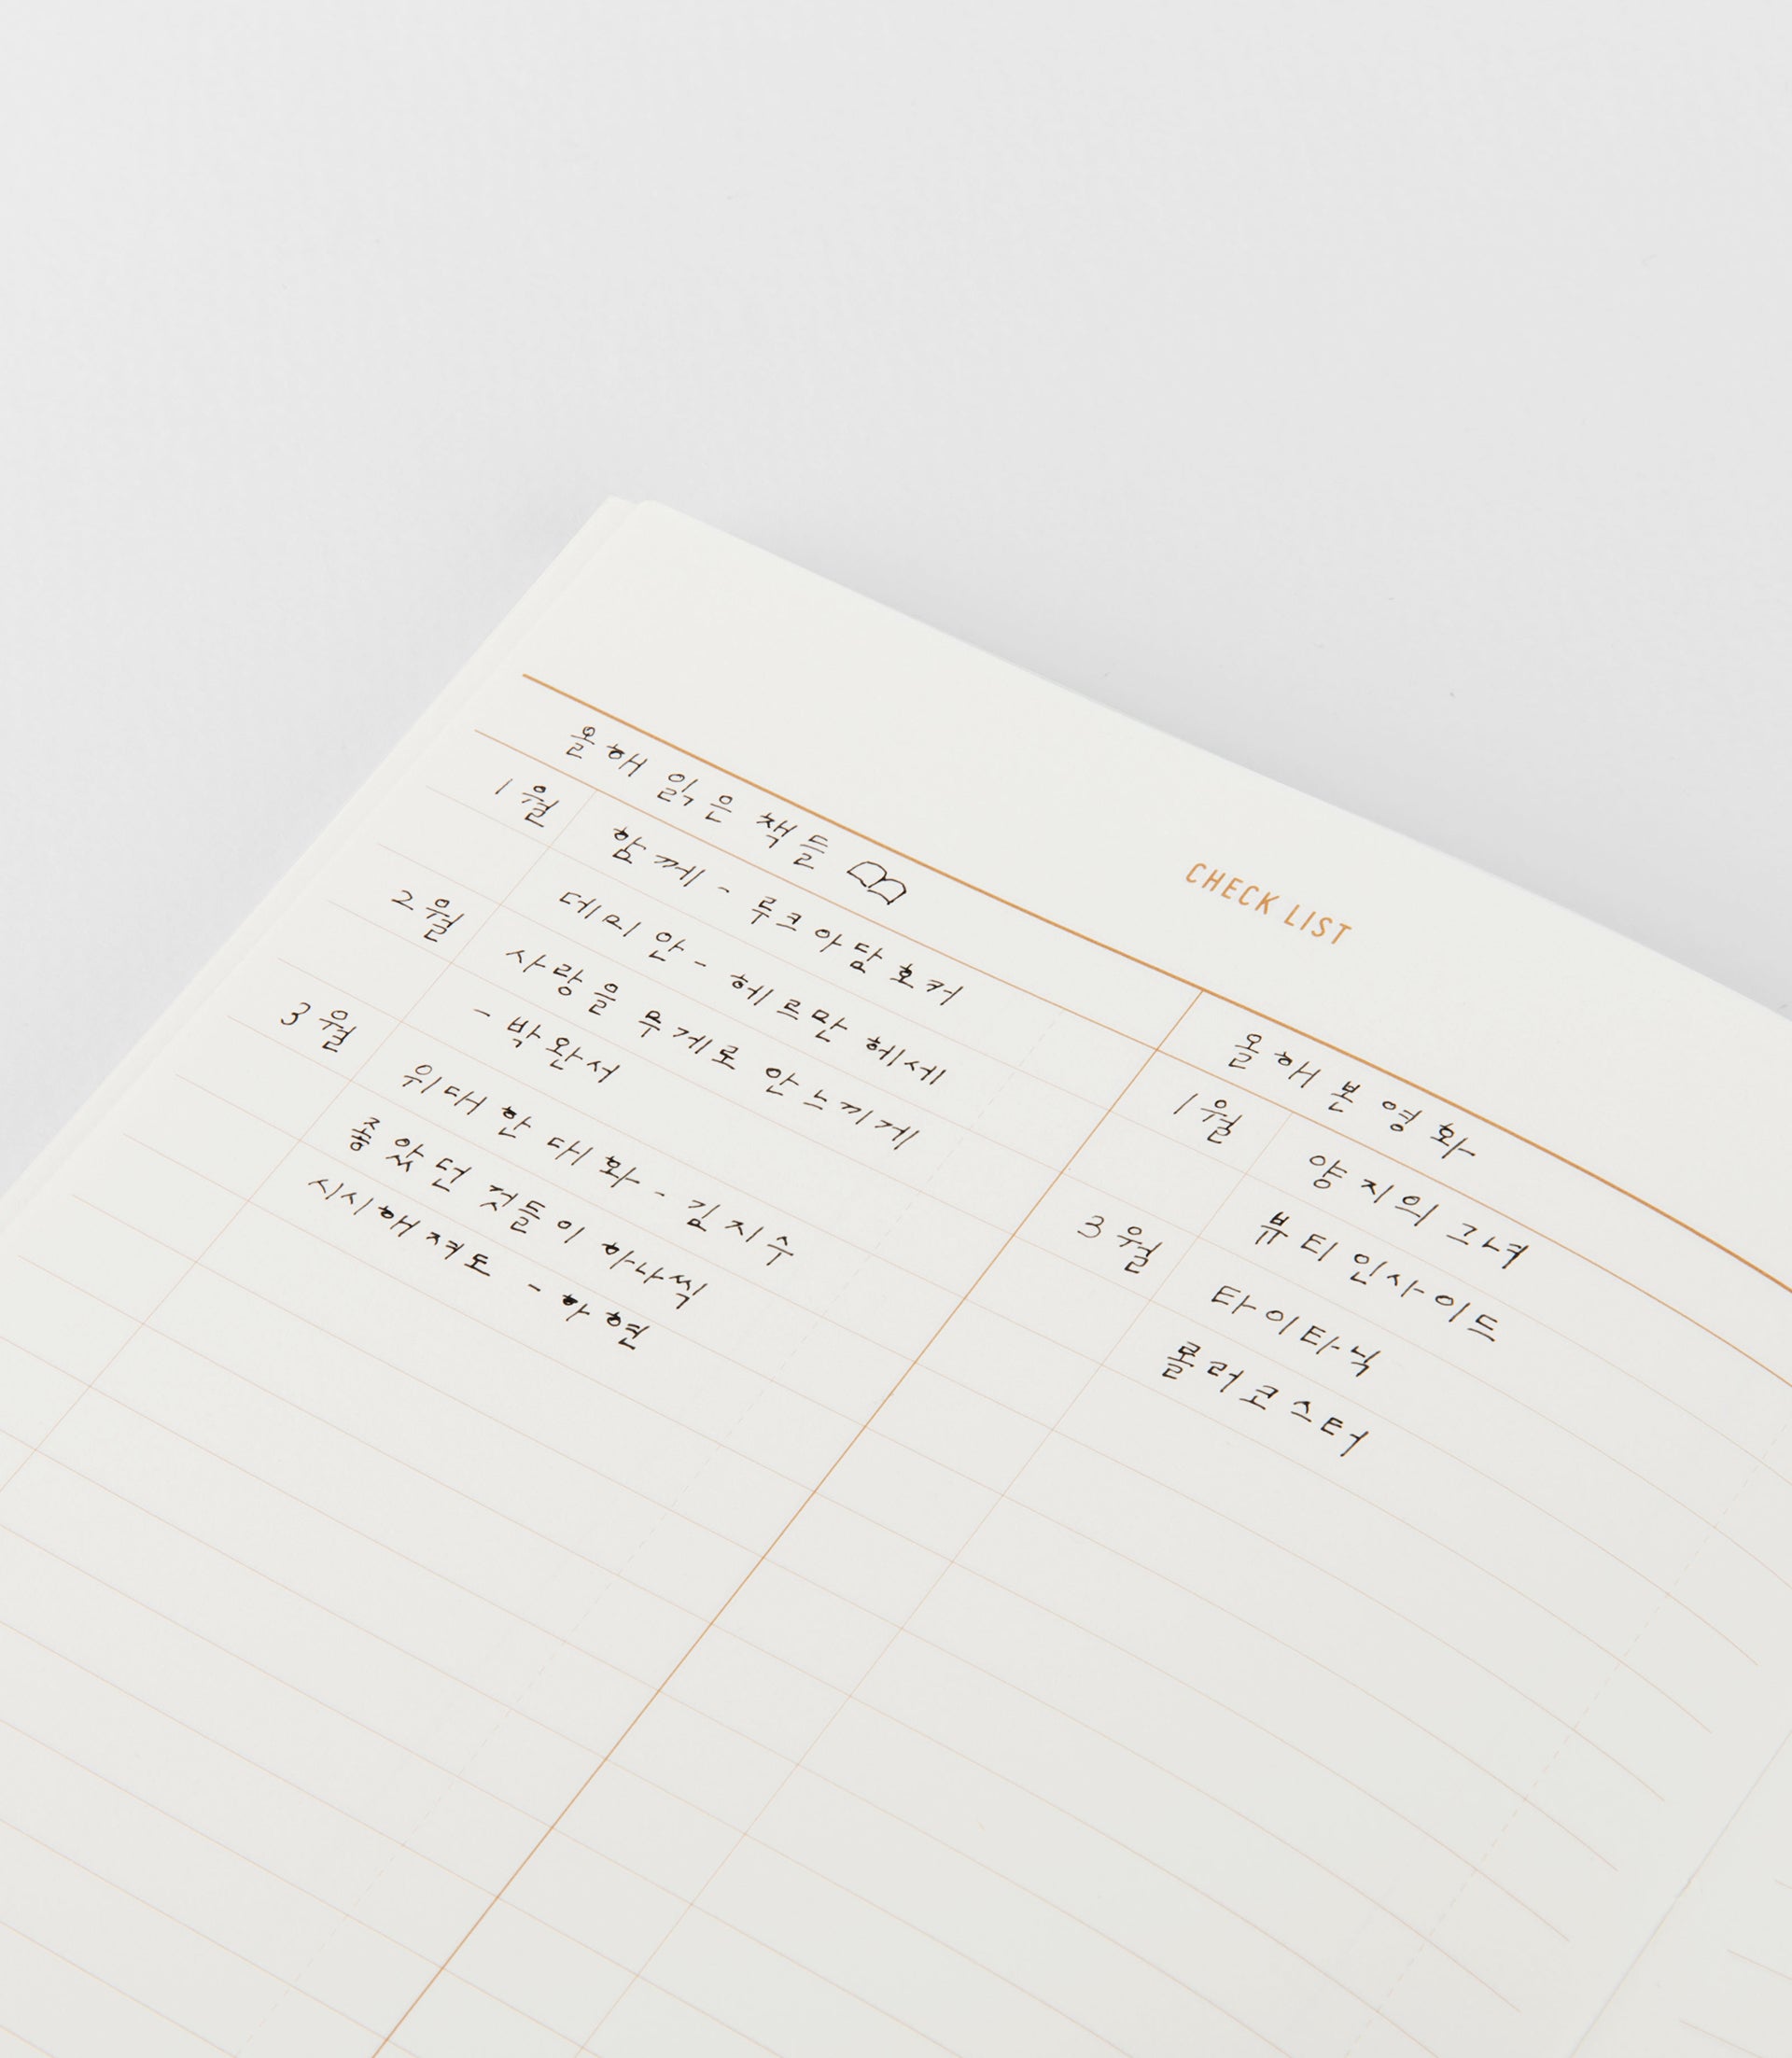 CHECK LIST
올해 읽은 책들
1월
함께 - 루크 아담 호커
데미안 - 헤르만 헤세
2월
사랑을 무게로 안 느끼게
- 박완서
3월
위대한 대화 - 김지수
좋았던 것들이 하나씩
시시해져도 - 하현
올해 본 영화
1월
양지의 그녀
뷰티 인사이드
3월
타이타닉
롤러코스터